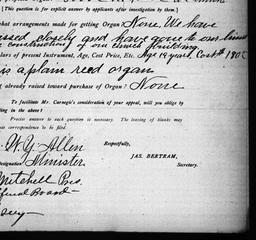 (This question is for explicit answer by applicants after investigation by them.)
What arrangements made for getting Organ? None. We have
closely and have gone to our limit
construction of our church building
of present Instrument, Age, Cost Price, Etc. Age 19 years, Cost
is a plain reed organ
already raised toward purchase of Organ? None
To facilitate Mr. Carnegie's consideration of your appeal, will you oblige by filling in the above?
Precise answer to each question is necessary. The leaving of blanks may
correspondence to be filed.
Respectfully,
JAS. BERTRAM,
Secretary.
Allen
Designation Minister
Mitchell Pres.
Official Board